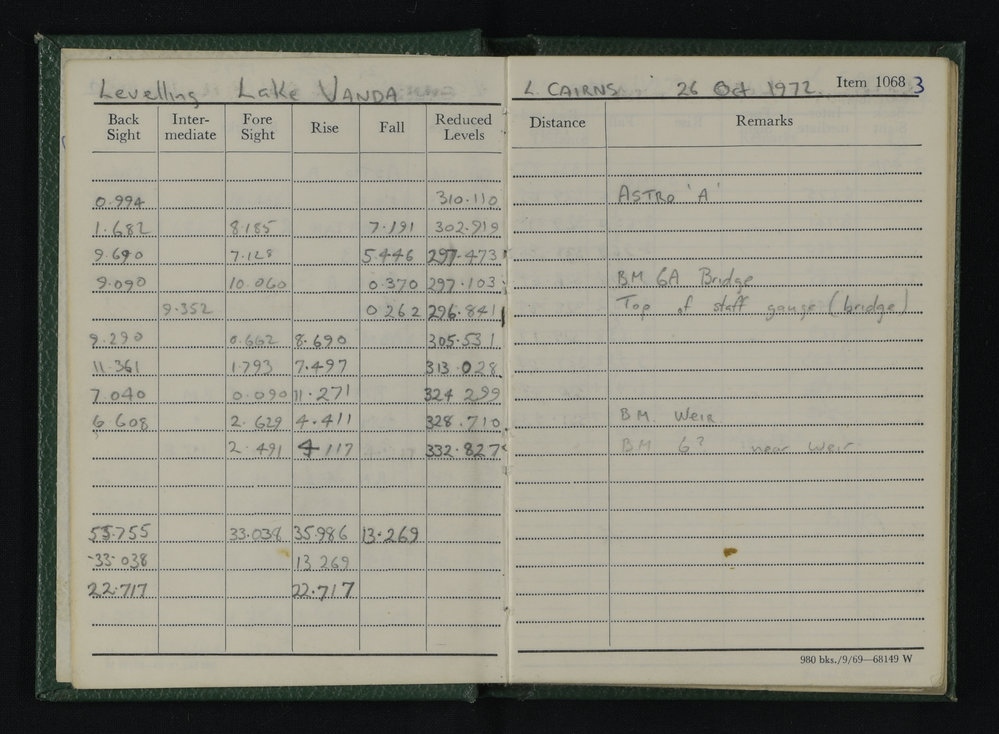 Levelling Lake VANDA L. CAIRNS 26 Oct 1972. Item 1068 3
Back Sight Inter-mediate Fore Sight Rise Fall Reduced Levels Distance Remarks
0.994 310.110 ASTRO 'A'
1.682 8.185 7.191 302.919
9.690 7.128 5.446 297.473
9.090 10.060 0.370 297.103 BM 6A Bridge
9.352 0.262 296.841 Top of staff gauge (bridge)
9.290 0.662 8.690 305.531
11.361 1.793 7.497 313.028
7.040 0.090 11.271 324.299
6.608 2.629 4.411 328.710 BM. Weir
2.491 4.117 332.827 BM 6? near weir
55.755 33.038 35.986 13.269
-33.038 13.269
22.717 22.717
980 bks./9/69—68149 W